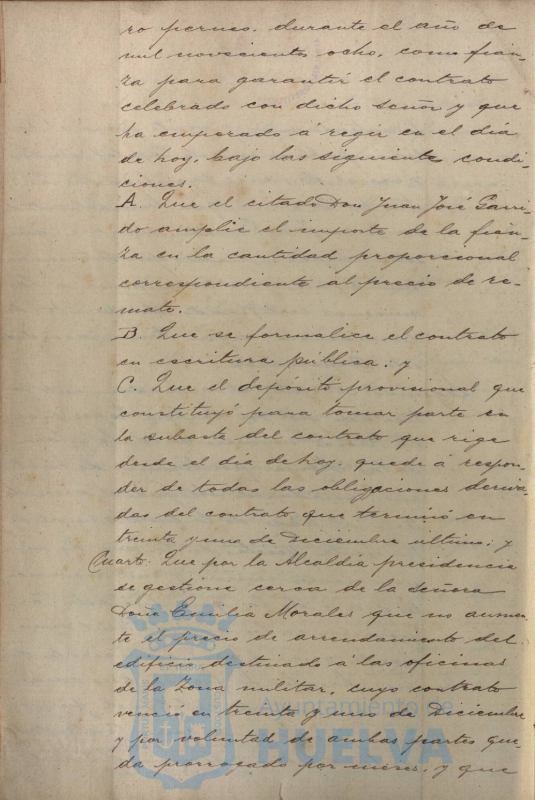 ro perros, durante el año de
mil novecientos ocho, como fian-
za para garantir el contrato
celebrado con dicho señor y que
ha empezado á regir en el día
de hoy, bajo las siguientes condi-
ciones.
A. Que el citado Don Juan José Garri-
do amplie el importe de la fian-
za en la cantidad proporcional
correspondiente al precio de re-
mate.
B. Que se formalice el contrato
en escritura pública; y
C. Que el depósito provisional que
constituyó para tomar parte en
la subasta del contrato que rige
desde el día de hoy, quede á respon-
der de todas las obligaciones deriva-
das del contrato que terminó en
treinta y uno de Diciembre último; y
Cuarto: Que por la Alcaldía presidencia
se gestione cerca de la Señora
Doña Emilia Morales que no aumen-
te el precio de arrendamiento del
edificio destinado á las oficinas
de la Zona militar, cuyo contrato
venció en treinta y uno de Diciembre
y por voluntad de ambas partes que-
da prorrogado por meses, y que
Ayuntamiento de
HUELVA